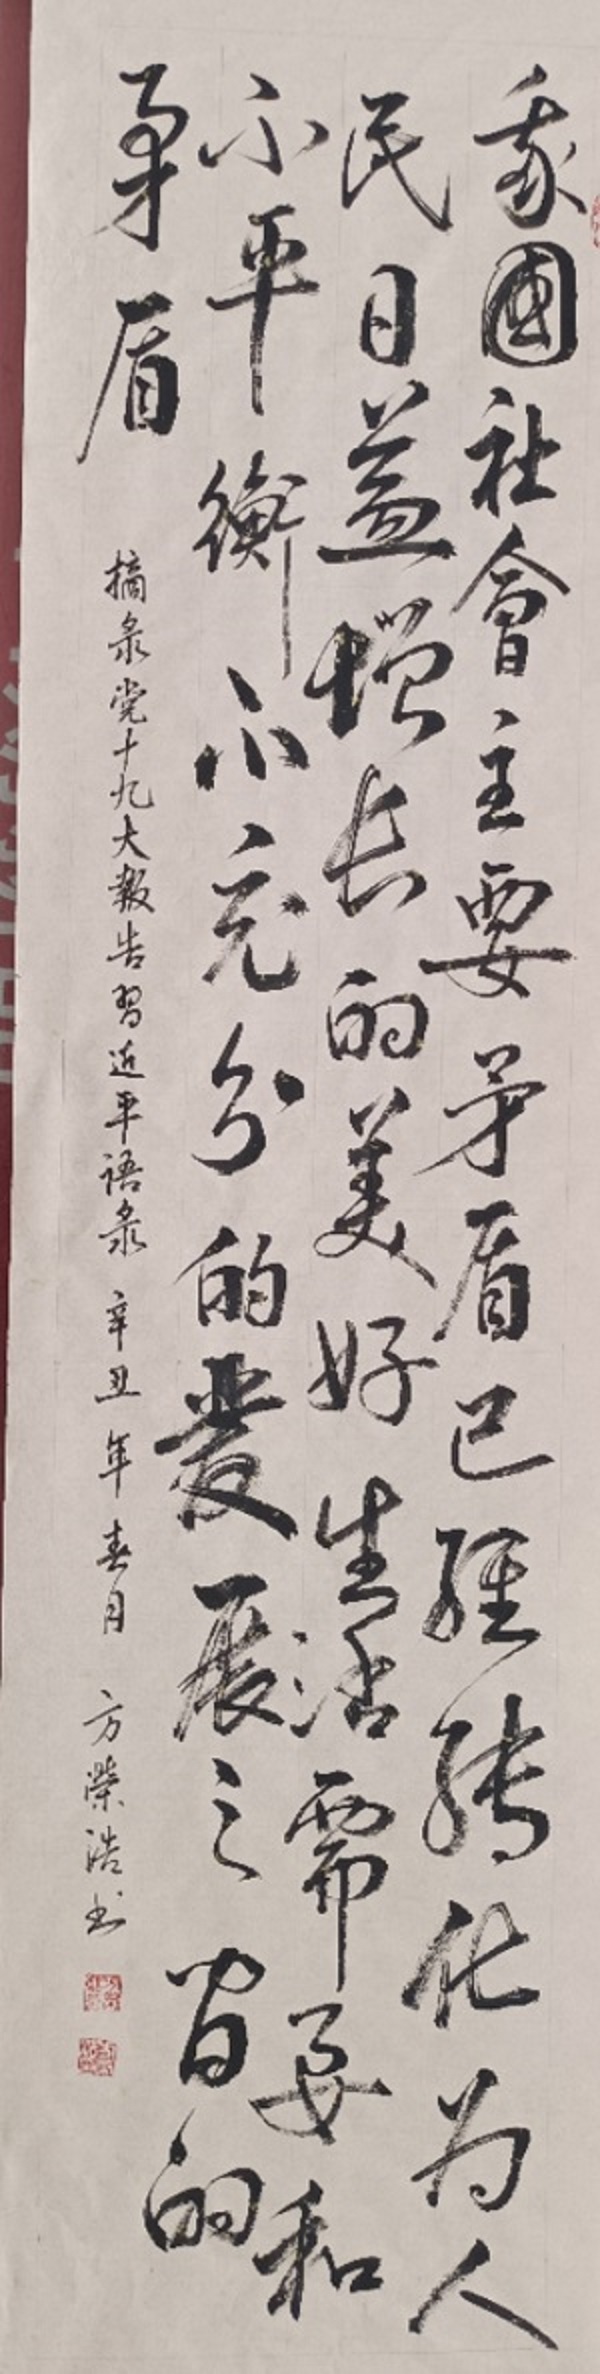 我國社會主要矛盾已經转化为人
民日益增长的美好生活需要和
不平衡不充分的發展之间的
矛盾
摘录党十九大報告習近平语录 辛丑年春月 方榮浩书